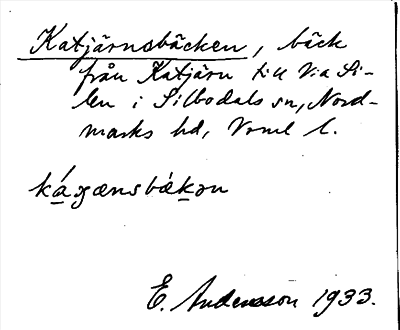 Katjärnsbäcken, bäck
från Katjärn till V:a Si-
len i Silbodals sn, Nord-
marks hd, Vrml l.
ká̱gænsbǽḵən
E. Andersson 1933.